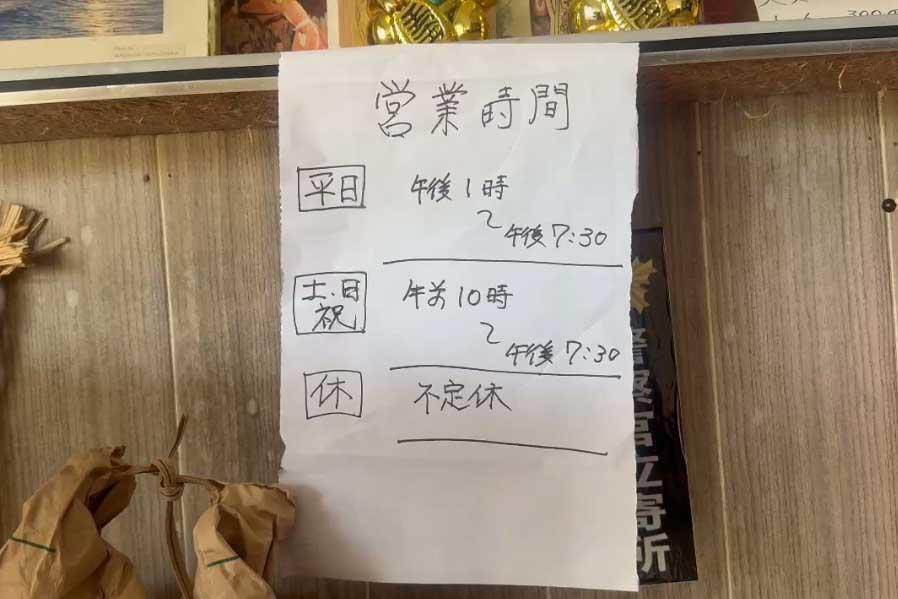 営業時間
平日
午後1時
〜
午後7:30
土・日
祝
午前10時
〜
午後7:30
休
不定休
警察官立寄所